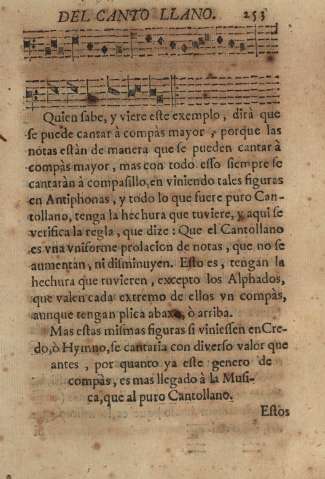 DEL CANTO LLANO. 253
Quien sabe, y viere este exemplo, dirà que
se puede cantar à compàs mayor, porque las
notas estàn de manera que se pueden cantar à
compàs mayor, mas con todo esso siempre se
cantaràn à compasillo, en viniendo tales figuras
en Antiphonas, y todo lo que fuere puro Can-
tollano, tenga la hechura que tuviere, y aqui se
verifica la regla, que dize: Que el Cantollano
es vna vniforme prolacion de notas, que no se
aumentan, ni disminuyen. Esto es, tengan la
hechura que tuvieren, excepto los Alphados,
que valen cada extremo de ellos vn compàs,
aunque tengan plica abaxo, ò arriba.
Mas estas mismas figuras si viniessen en Cre-
do, ò Hymno, se cantaria con diverso valor que
antes, por quanto ya este genero de
compàs, es mas llegado à la Musi-
ca, que al puro Cantollano.
Estos